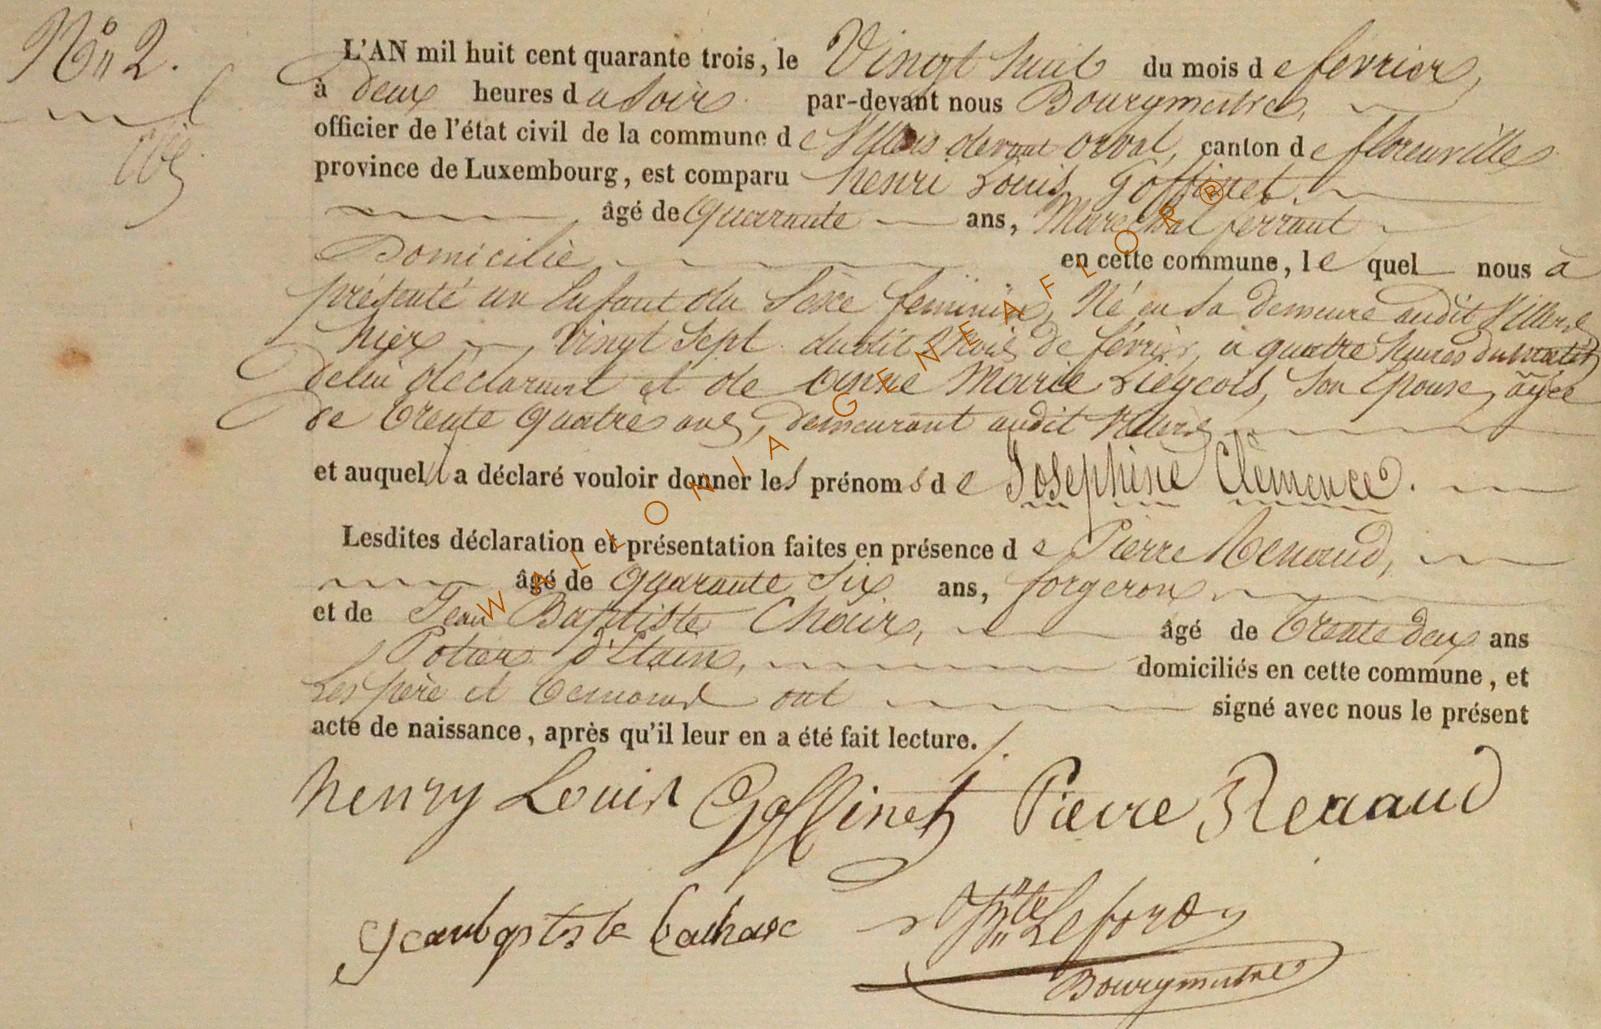 N° 2.
L'AN mil huit cent quarante trois, le Vingt huit du mois de fevrier,
à deux heures du Soir par-devant nous Bourgmestre,
officier de l'état civil de la commune de Villers devant orval, canton de florenville
province de Luxembourg, est comparu henri Louis goffinet.
âgé de quarante ans, Marechal ferrant
Domicilié en cette commune, le quel nous à
présenté un Enfant du Sexe feminin, Né en Sa demeure audit Villers
hier, Vingt Sept dudit Mois de février, à quatre heures du matin
de lui déclarant et de anne Marie Liegeois, Son Epouse, agée
de trente quatre ans, demeurant audit Villers
et auquel il a déclaré vouloir donner les prénoms de Joséphine Clémence.
Lesdites déclaration et présentation faites en présence de Pierre Renaud,
âgé de quarante Six ans, forgeron
et de Jean Baptiste âgé de trente deux ans
Potier d'Etain, domiciliés en cette commune, et
Les père et ont signé avec nous le présent
acte de naissance, après qu'il leur en a été fait lecture.
henry Louis Goffinet Pierre Renaud
Jean baptiste
Bourgmestre
WALLONIA GENEAFLOR ®